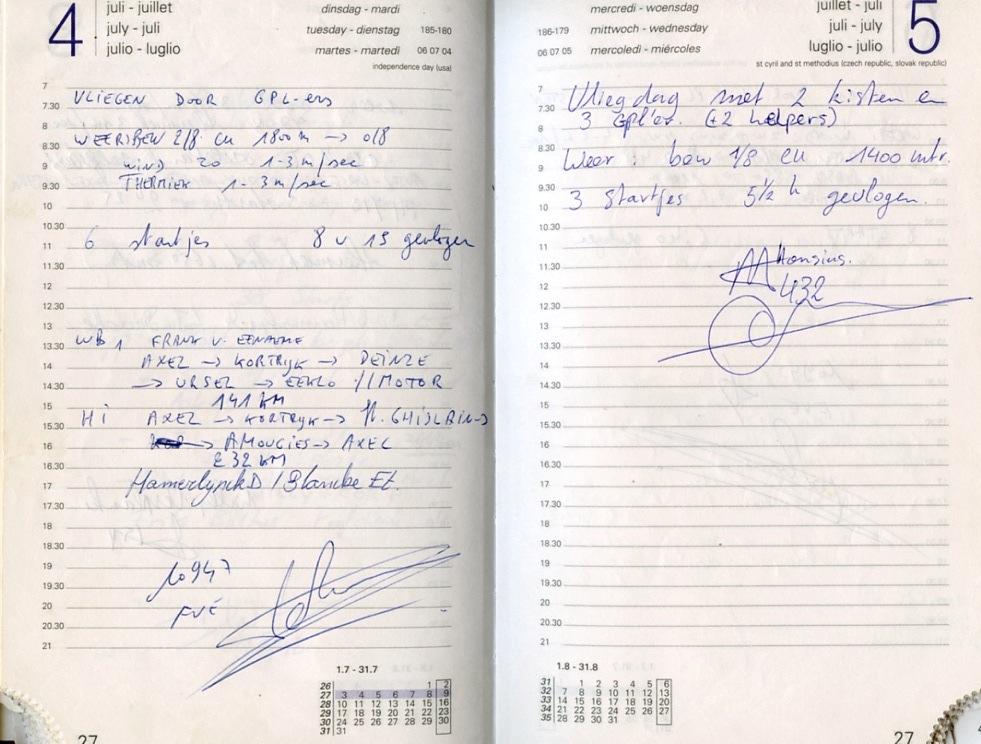 4
juli - juillet
july - juli
julio - luglio
dinsdag - mardi
tuesday - dienstag 185-180
martes - martedì 06 07 04
independence day (usa)
7
7.30 VLIEGEN DOOR GPL-ers
8
8.30 WEERSBEW 2/8 CU 1800 m → 0/8
9 WIND 20 1-3 m/sec
9.30 THERMIEK 1-3 m/sec
10
10.30
11 6 startjes 8 u 19 gevlogen
11.30
12
12.30
13
13.30 WB 1 FRANK V. EENAEME
14 AXEL → KORTRIJK → DEINZE
14.30 → URSEL → EEKLO // MOTOR
15 141 KM
15.30 Hi AXEL → KORTRYK → St. GHISLAIN →
16 → AMOUGIES → AXEL
16.30 232 KM
17 Hamerlynck D / Blancke Et.
17.30
18
18.30
19 10947
19.30
20 FVE
20.30
21
1.7 - 31.7
26 1 2
27 3 4 5 6 7 8 9
28 10 11 12 13 14 15 16
29 17 18 19 20 21 22 23
30 24 25 26 27 28 29 30
31 31
27
mercredi - woensdag
186-179 mittwoch - wednesday
06 07 05 mercoledì - miércoles
juillet - juli
juli - july
luglio - julio
5
st cyril and st methodius (czech republic, slovak republic)
7 Vliegdag met 2 kisten en
7.30
8 3 GPL'er. (+2 helpers)
8.30
9 Weer : bew 1/8 cu 1400 mtr.
9.30
10 3 Startjes 5½ h gevlogen.
10.30
11
11.30
12 432
12.30
13
13.30
14
14.30
15
15.30
16
16.30
17
17.30
18
18.30
19
19.30
20
20.30
21
1.8 - 31.8
31 1 2 3 4 5 6
32 7 8 9 10 11 12 13
33 14 15 16 17 18 19 20
34 21 22 23 24 25 26 27
35 28 29 30 31
27